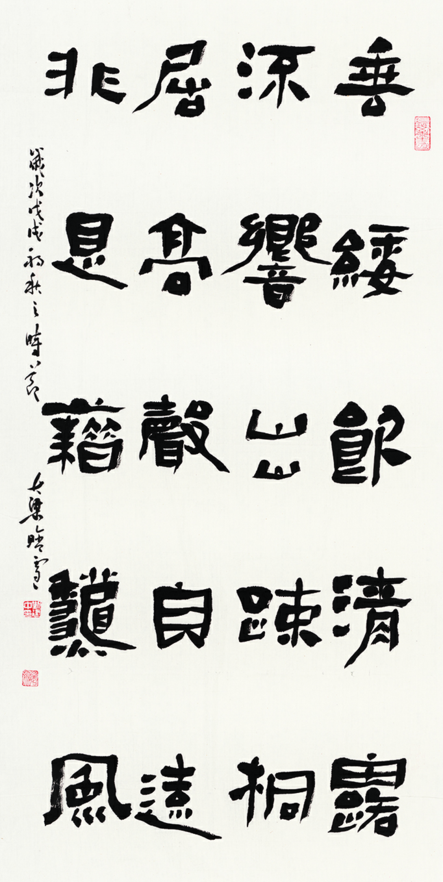 垂緌飲清露
流響出踈桐
居高聲自遠
非是藉龝風
歲次戊戌初秋之時 大梁